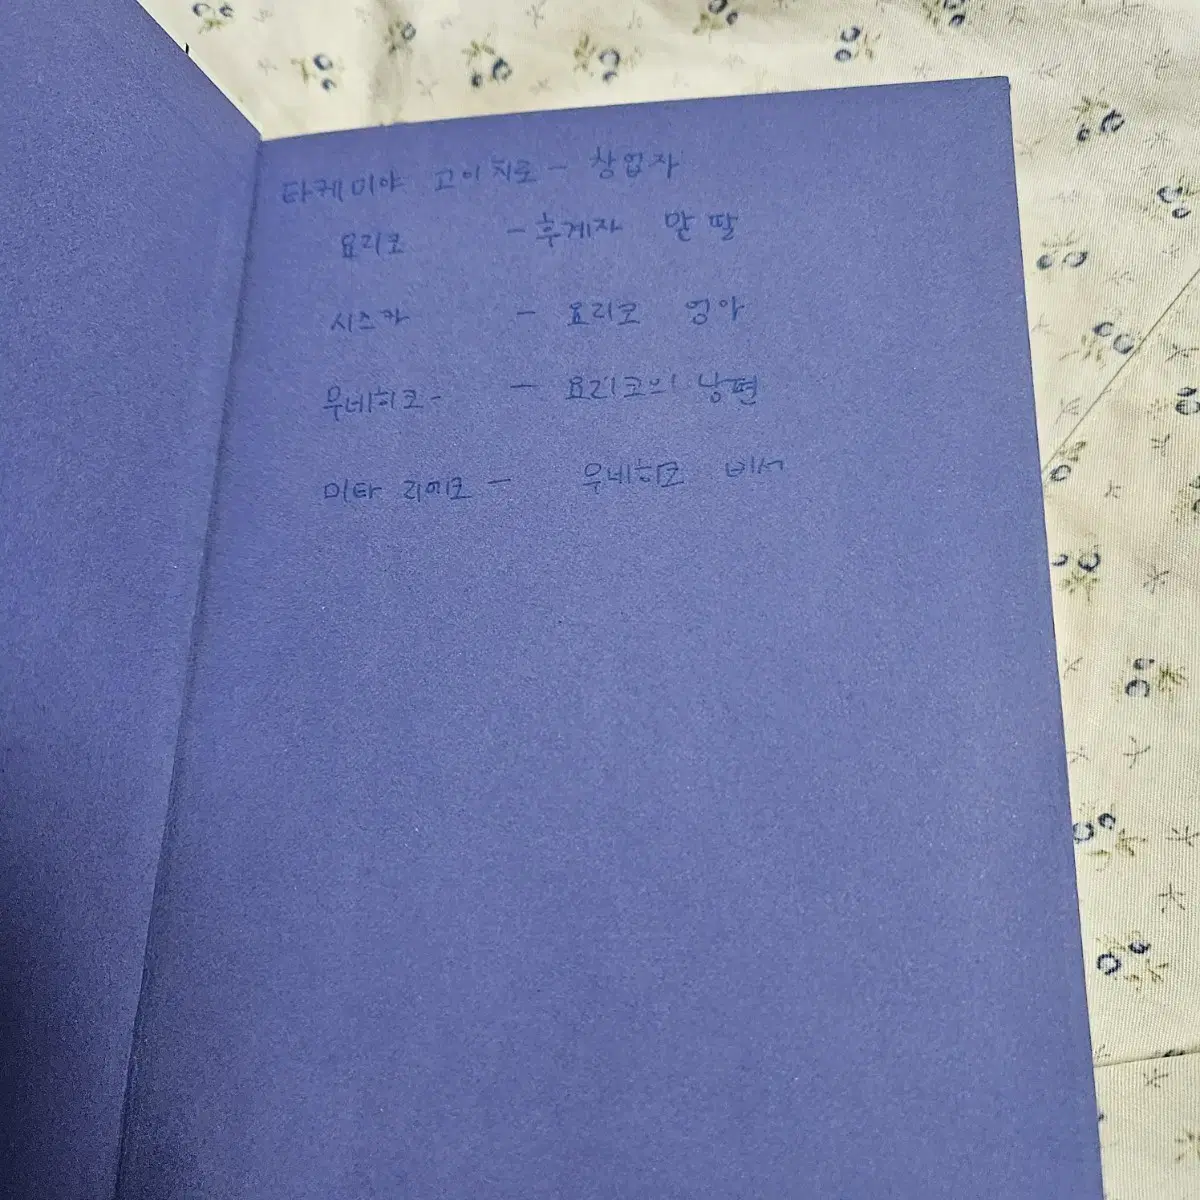 타케미야 고이치로 - 창업자
요리코 - 후계자 맏딸
시즈카 - 요리코 엄마
무네히코 - - 요리코의 남편
미타 리에코 - 무네히코 비서